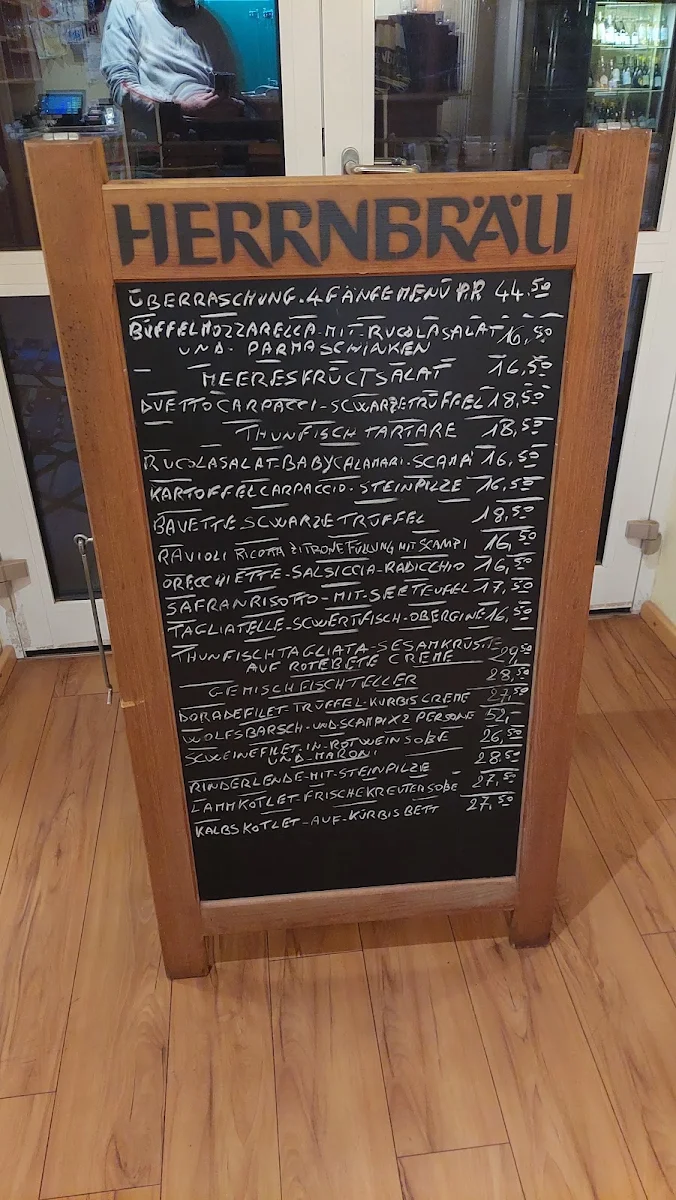 HERRNBRÄU
ÜBERRASCHUNG-4GÄNGEMENÜ P.P. 44,50
BÜFFELMOZZARELLA-MIT-RUCOLASALAT 16,50
UND-PARMASCHINKEN
MEERESFRÜCTSALAT 16,50
DUETTOCARPACCI-SCWARZETRÜFFEL 18,50
THUNFISCH TARTARE 18,50
RUCOLASALAT-BABYCALAMARI-SCAMPI 16,50
KARTOFFELCARPACCIO-STEINPILZE 16,50
BAVETTE SCWARZE TRÜFFEL 18,50
RAVIOLI RICOTTA ZITRONE FÜLLUNG MIT SCAMPI 16,50
ORECCHIETTE-SALSICCIA-RADICCHIO 16,50
SAFRANRISOTTO-MIT-SEETEUFEL 17,50
TAGLIATELLE-SCWERTFISCH-OBERGINE 16,50
THUNFISCHTAGLIATA-SESAMKRÜSTE
AUF ROTEBETE CREME 29,50
GEMISCHFISCHTELLER 28,50
DORADEFILET-TRÜFFEL-KÜRBISCREME 27,50
WOLFSBARSCH-UND-SCAMPI X 2 PERSONE 52,-
SCWEINEFILET-IN-ROTWEINSOßE 26,50
UND-MARONI
RINDERLENDE-MIT-STEINPILZE 28,50
LAMMKOTLET-FRISCHEKREUTERSOßE 27,50
KALBSKOTLET-AUF-KÜRBISBETT 27,50